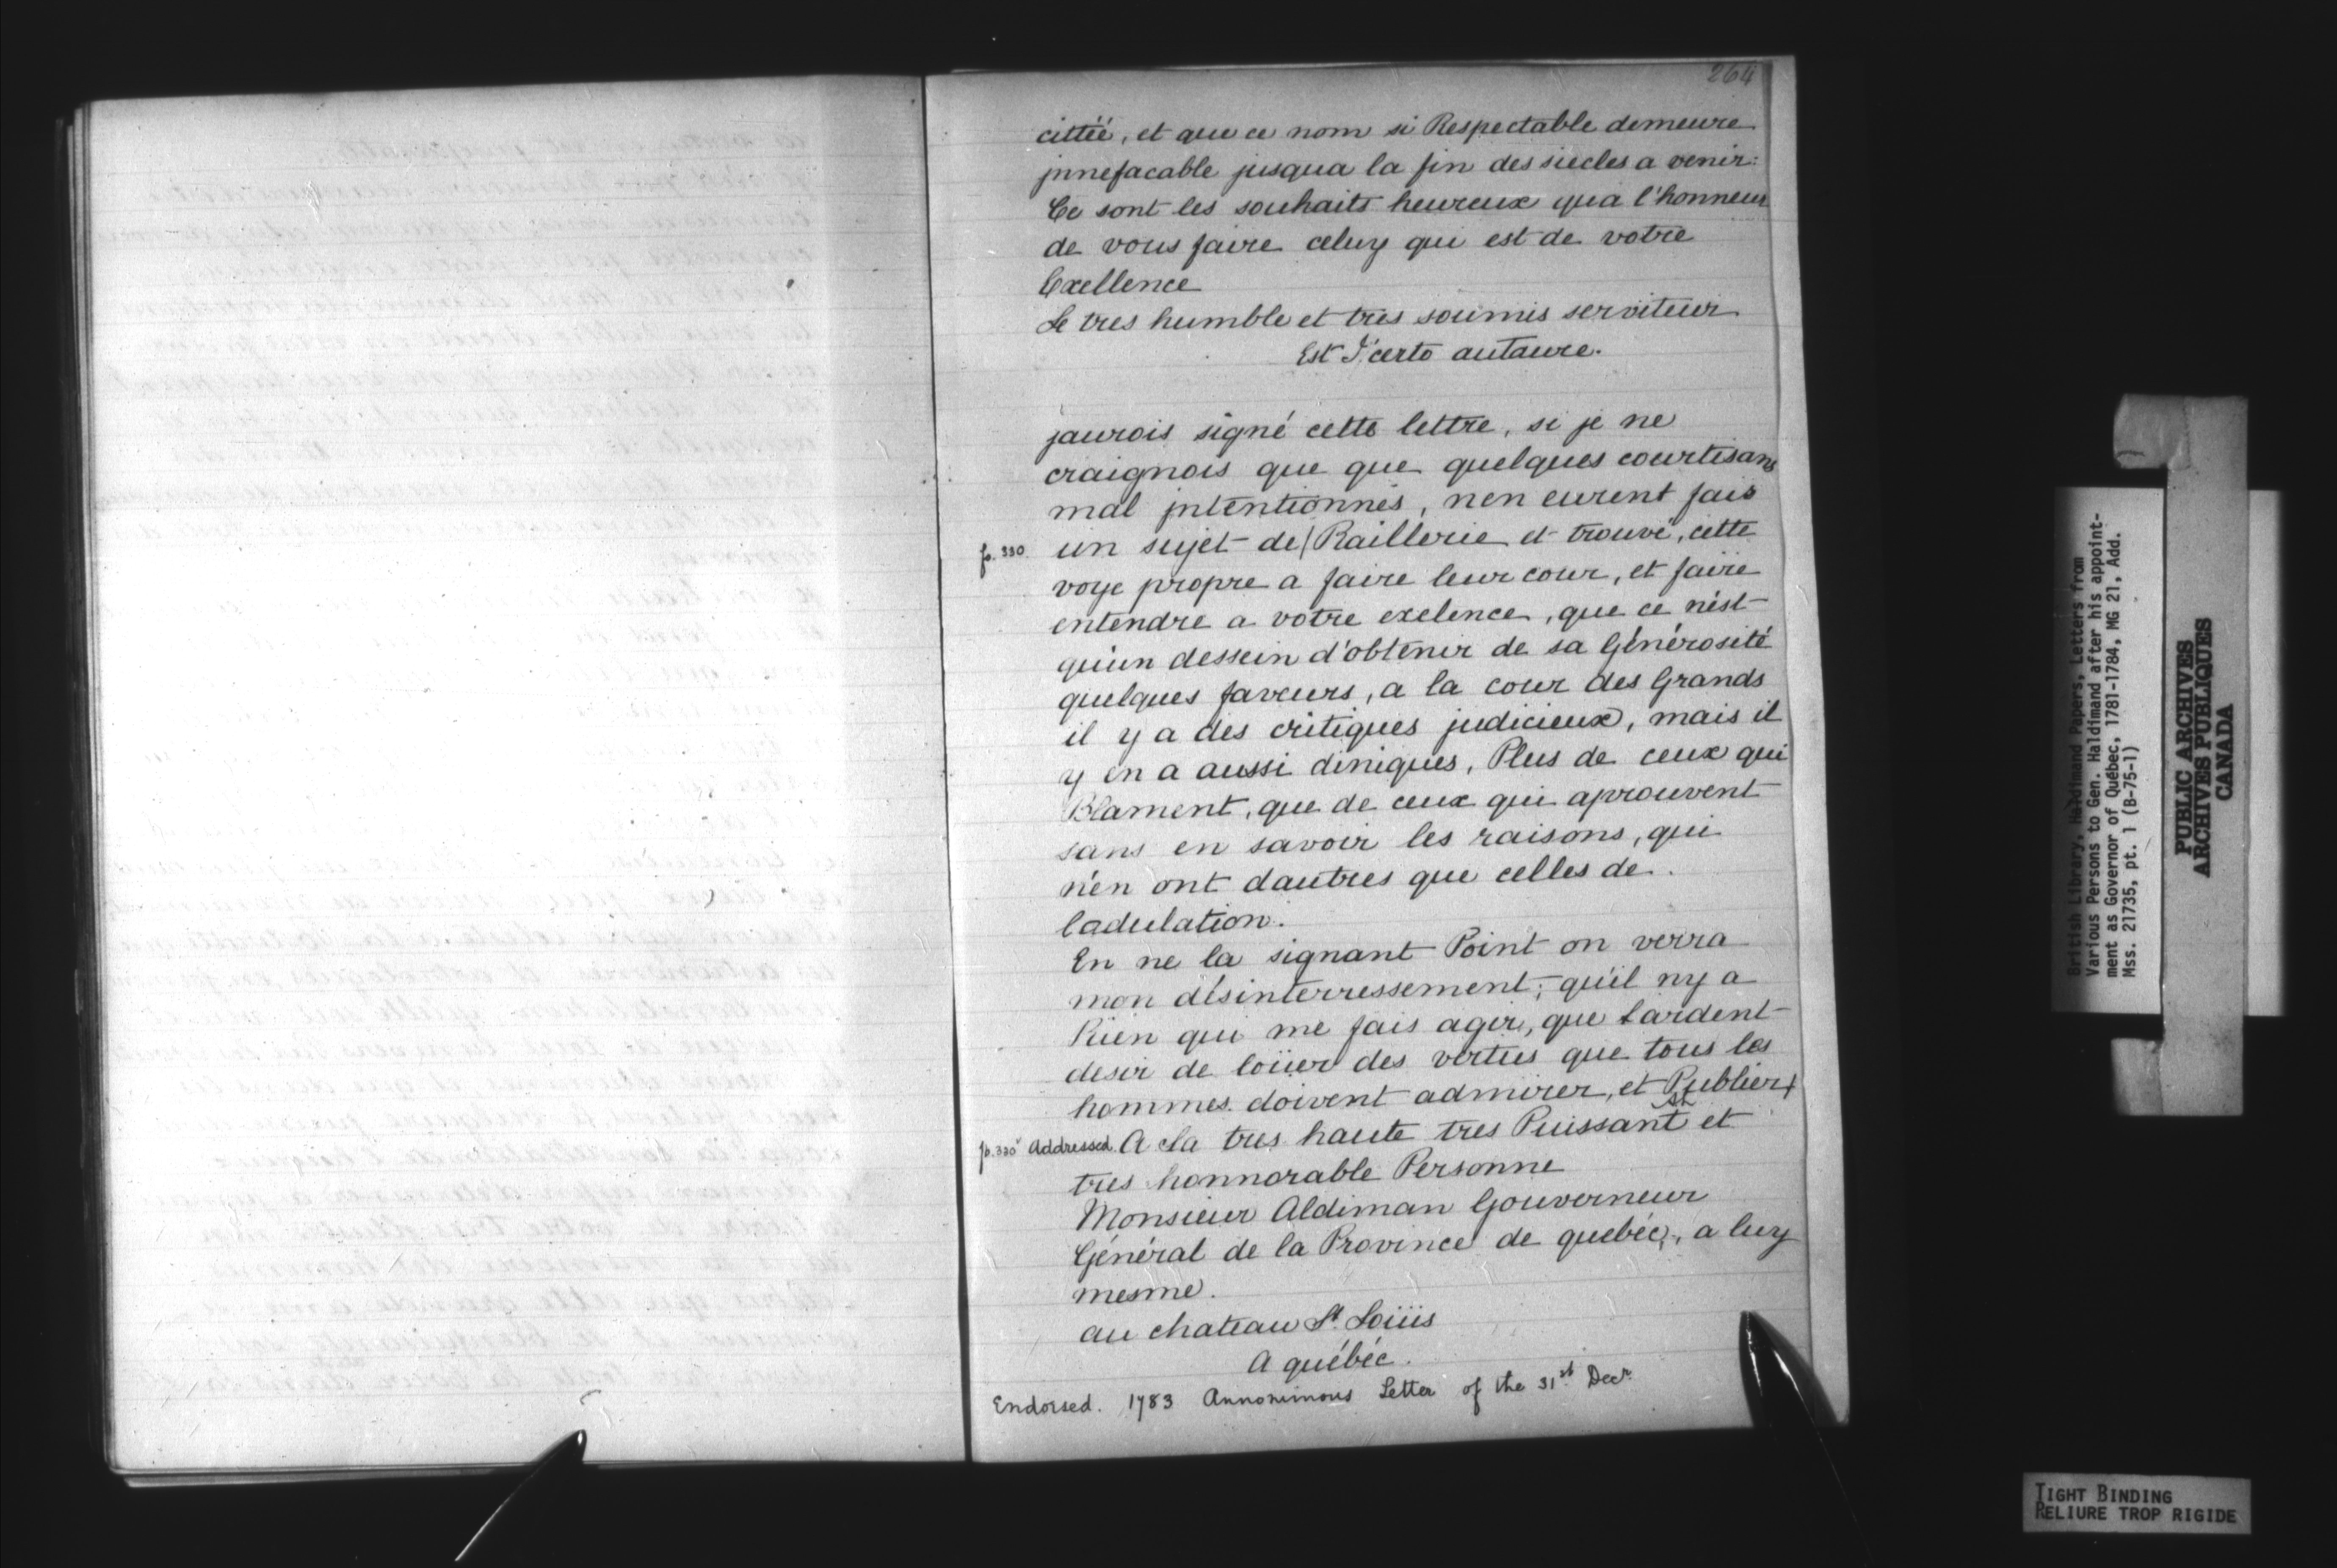 264
cittéé, et que ce nom si Respectable demeure
jnnefacable jusqua la fin des siecles a venir.
Ce sont les souhaits heureux qu'a l'honneur
de vous faire celuy qui est de votre
Exellence
Le tres humble et tres soumis serviteur
Est J'certo autaure.
jaurois signé cette lettre, si je ne
craignois que que quelques courtisans
mal jntentionnés, nen eurent fais
p. 330. un sujet de/Raillerie et trouvé, cette
voye propre a faire leur cour, et faire
entendre a votre exelence, que ce n'est
qu'un dessein d'obtenir de sa Générosité
quelques faveurs, a la cour des Grands
il y a des critiques judicieux, mais il
y en a aussi diniques, Plus de ceux qui
Blament, que de ceux qui aprouvent
sans en savoir les raisons, qui
n'en ont dautres que celles de
ladulation.
En ne la signant Point on verra
mon désinterressement; qu'il ny a
Rien qui me fais agir, que lardent
desir de loüer des vertus que tous les
hommes doivent admirer, et Publier+
p. 330v Addressed. A La tres haute tres Puissant et
tres honnorable Personne
Monsieur Aldiman Gouverneur
Général de la Province de quebéc, a luy
mesme.
au chateau St. Loüis
A québéc.
Endorsed. 1783 Annonimous Letter of the 31st Decr.
British Library, Haldimand Papers, Letters from
Various Persons to Gen. Haldimand after his appoint-
ment as Governor of Québec, 1781-1784, MG 21, Add.
Mss. 21735, pt. 1 (B-75-1)
PUBLIC ARCHIVES
ARCHIVES PUBLIQUES
CANADA
TIGHT BINDING
RELIURE TROP RIGIDE